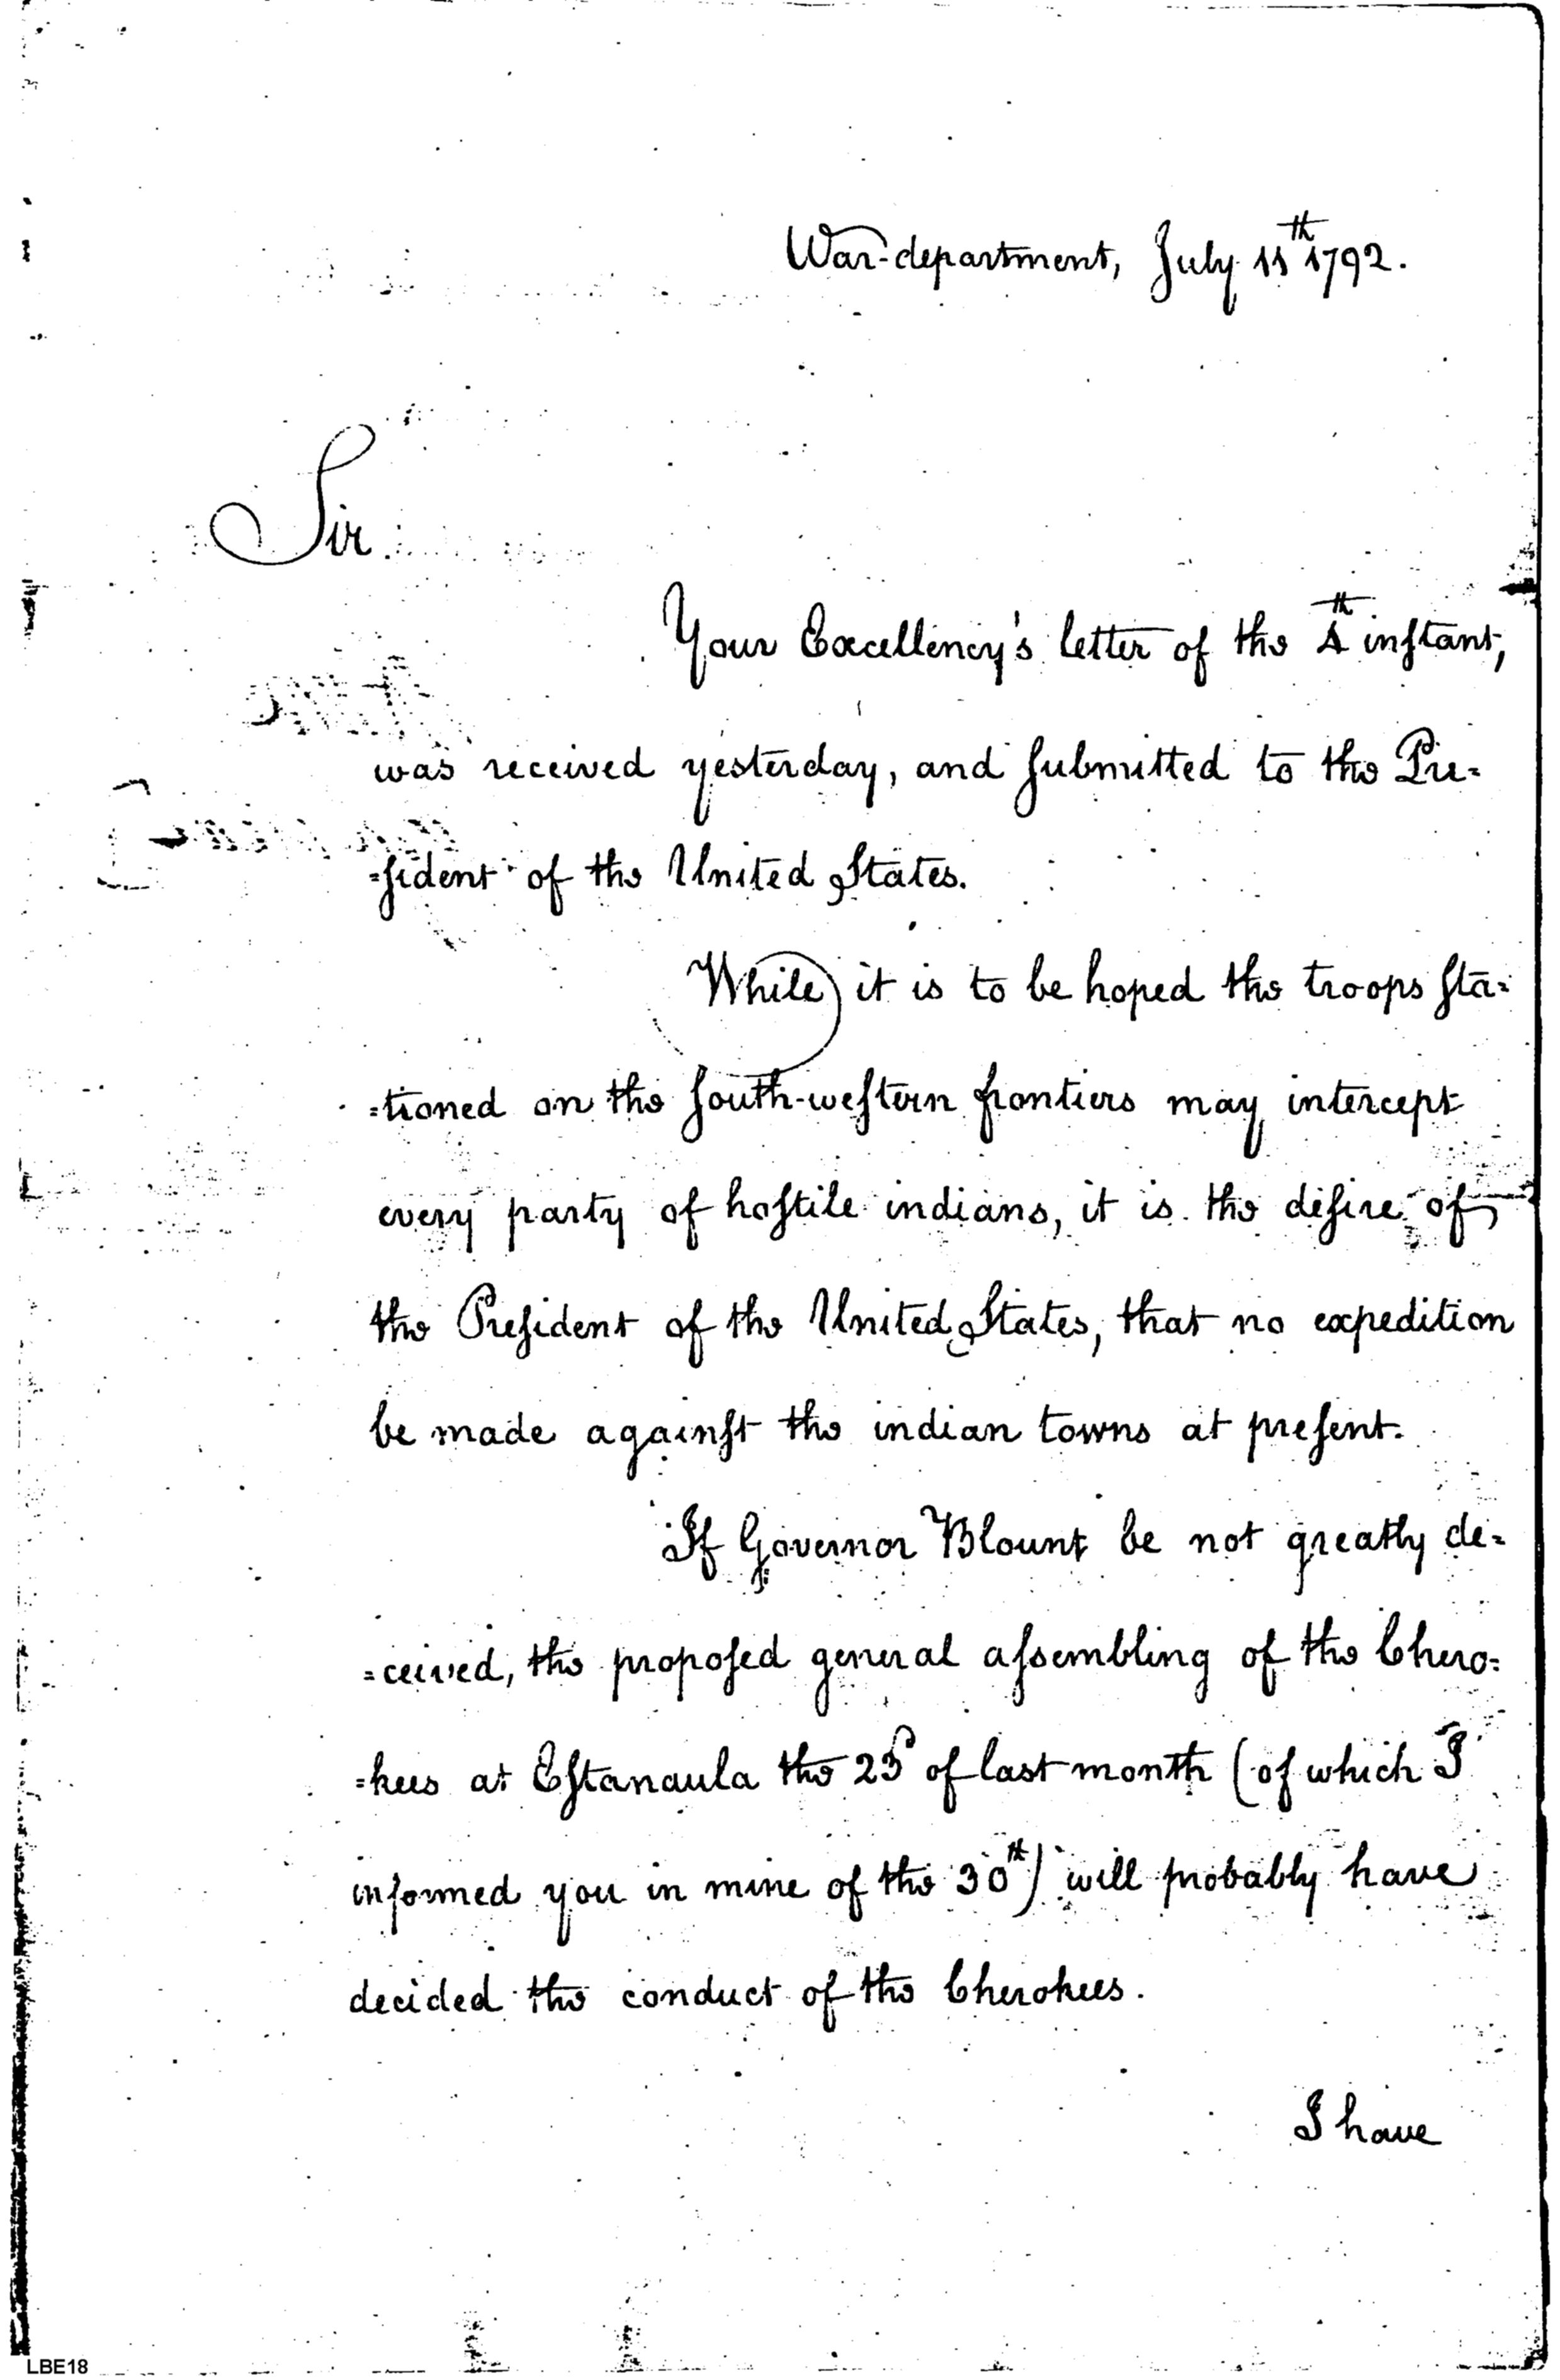 War-department, July 11th 1792.
Sir
Your Excellency's letter of the 4th inſtant,
was received yesterday, and ſubmitted to the Pre=
=ſident of the United States.
While it is to be hoped the troops ſta=
=tioned on the ſouth-weſtern frontiers may intercept
every party of hoſtile indians, it is the deſire of
the Preſident of the United States, that no expedition
be made againſt the indian towns at preſent.
If Governor Blount be not greatly de=
=ceived, the propoſed general aſsembling of the Chero=
=kees at Eſtanaula the 23d of last month (of which I
informed you in mine of the 30th) will probably have
decided the conduct of the Cherokees.
I have
LBE18